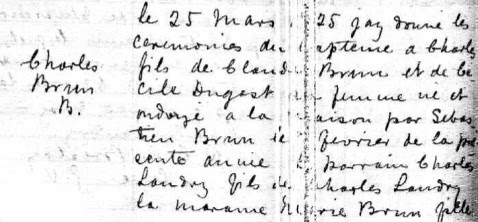 le 25 Mars 25 jay donné les
ceremonies du apteme a Charles
Charles fils de Claud Brun et de Ce
Brun cile Dugast femme né et
B. ondoyé a la aison par Sebas
tien Brun le fevrier de la pré
sente année parrain Charles
Landry fils de harles Landry
la maraine rie Brun fille